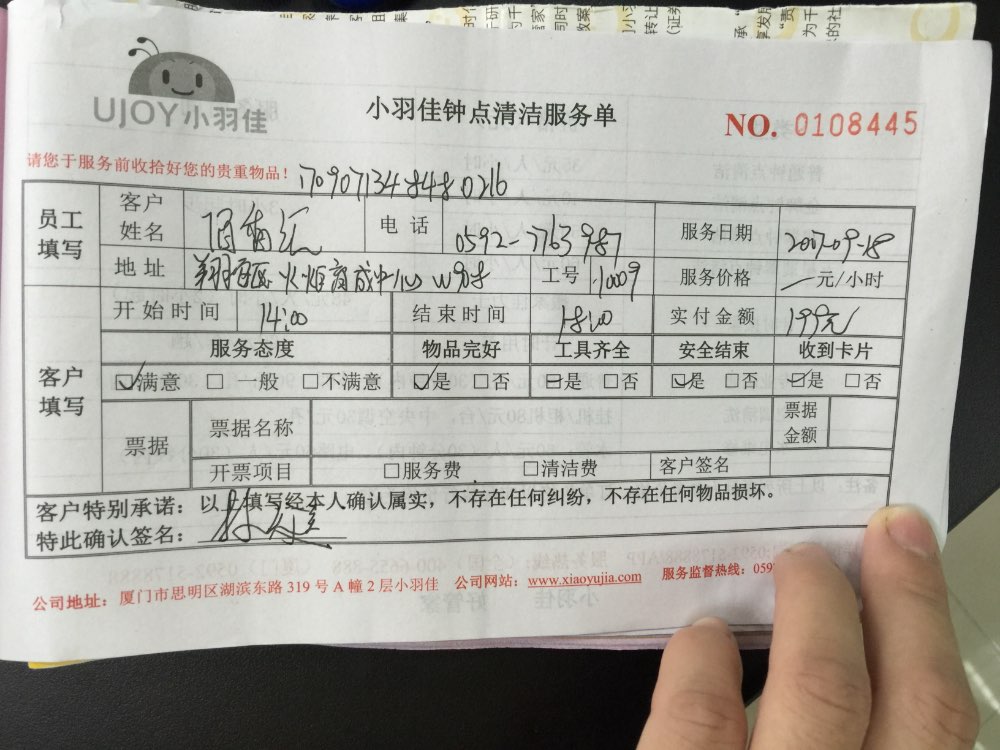 UJOY小羽佳
小羽佳钟点清洁服务单
NO. 0108445
请您于服务前收拾好您的贵重物品!
员工填写 客户姓名 电话 0592-7763987 服务日期
地址 工号 服务价格 一元/小时
客户填写 开始时间 14:00 结束时间 18:00 实付金额 199元
服务态度 物品完好 工具齐全 安全结束 收到卡片
☑满意 □一般 □不满意 ☑是 □否 ☑是 □否 ☑是 □否 ☑是 □否
票据 票据名称 票据金额
开票项目 □服务费 □清洁费 客户签名
客户特别承诺:以上填写经本人确认属实,不存在任何纠纷,不存在任何物品损坏。
特此确认签名:
公司地址:厦门市思明区湖滨东路 319 号 A 幢 2 层小羽佳 公司网站:www.xiaoyujia.com 服务监督热线:059